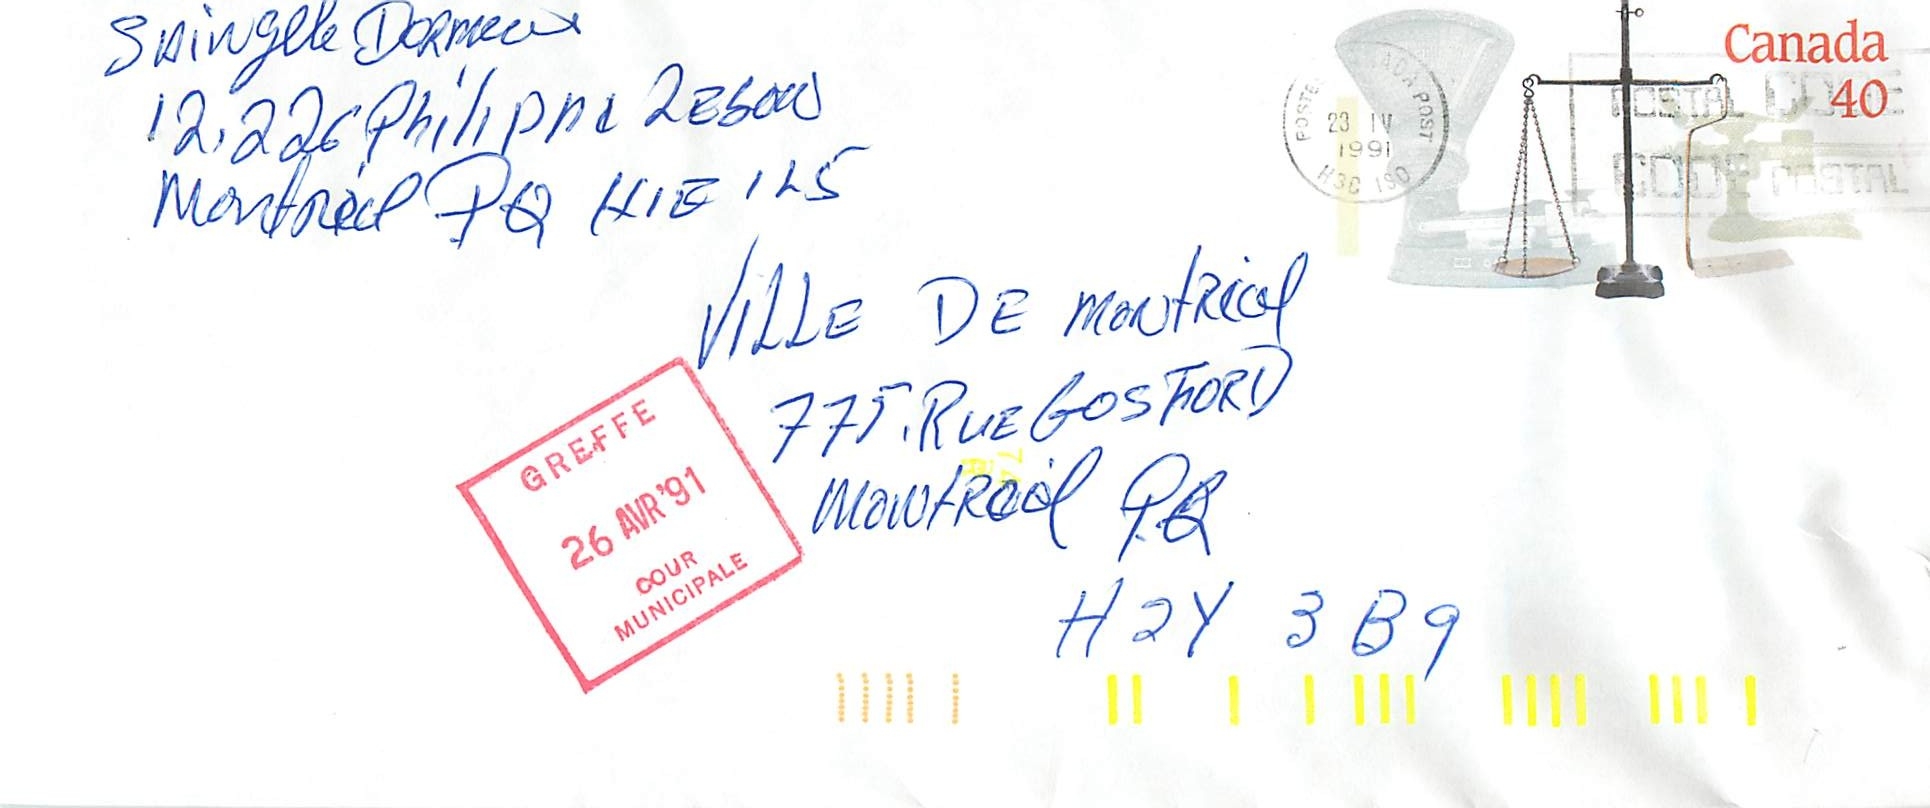 12,226 Philippe Lebon
Montréal PQ H1E 1L5
Canada
40
POSTE CANADA POST
23 IV
1991
H3C 1S0
POSTAL CODE
CODE POSTAL
VILLE DE Montréal
775, RUE GOSFORD
Montréal P.Q
H2Y 3B9
GREFFE
26 AVR '91
COUR
MUNICIPALE